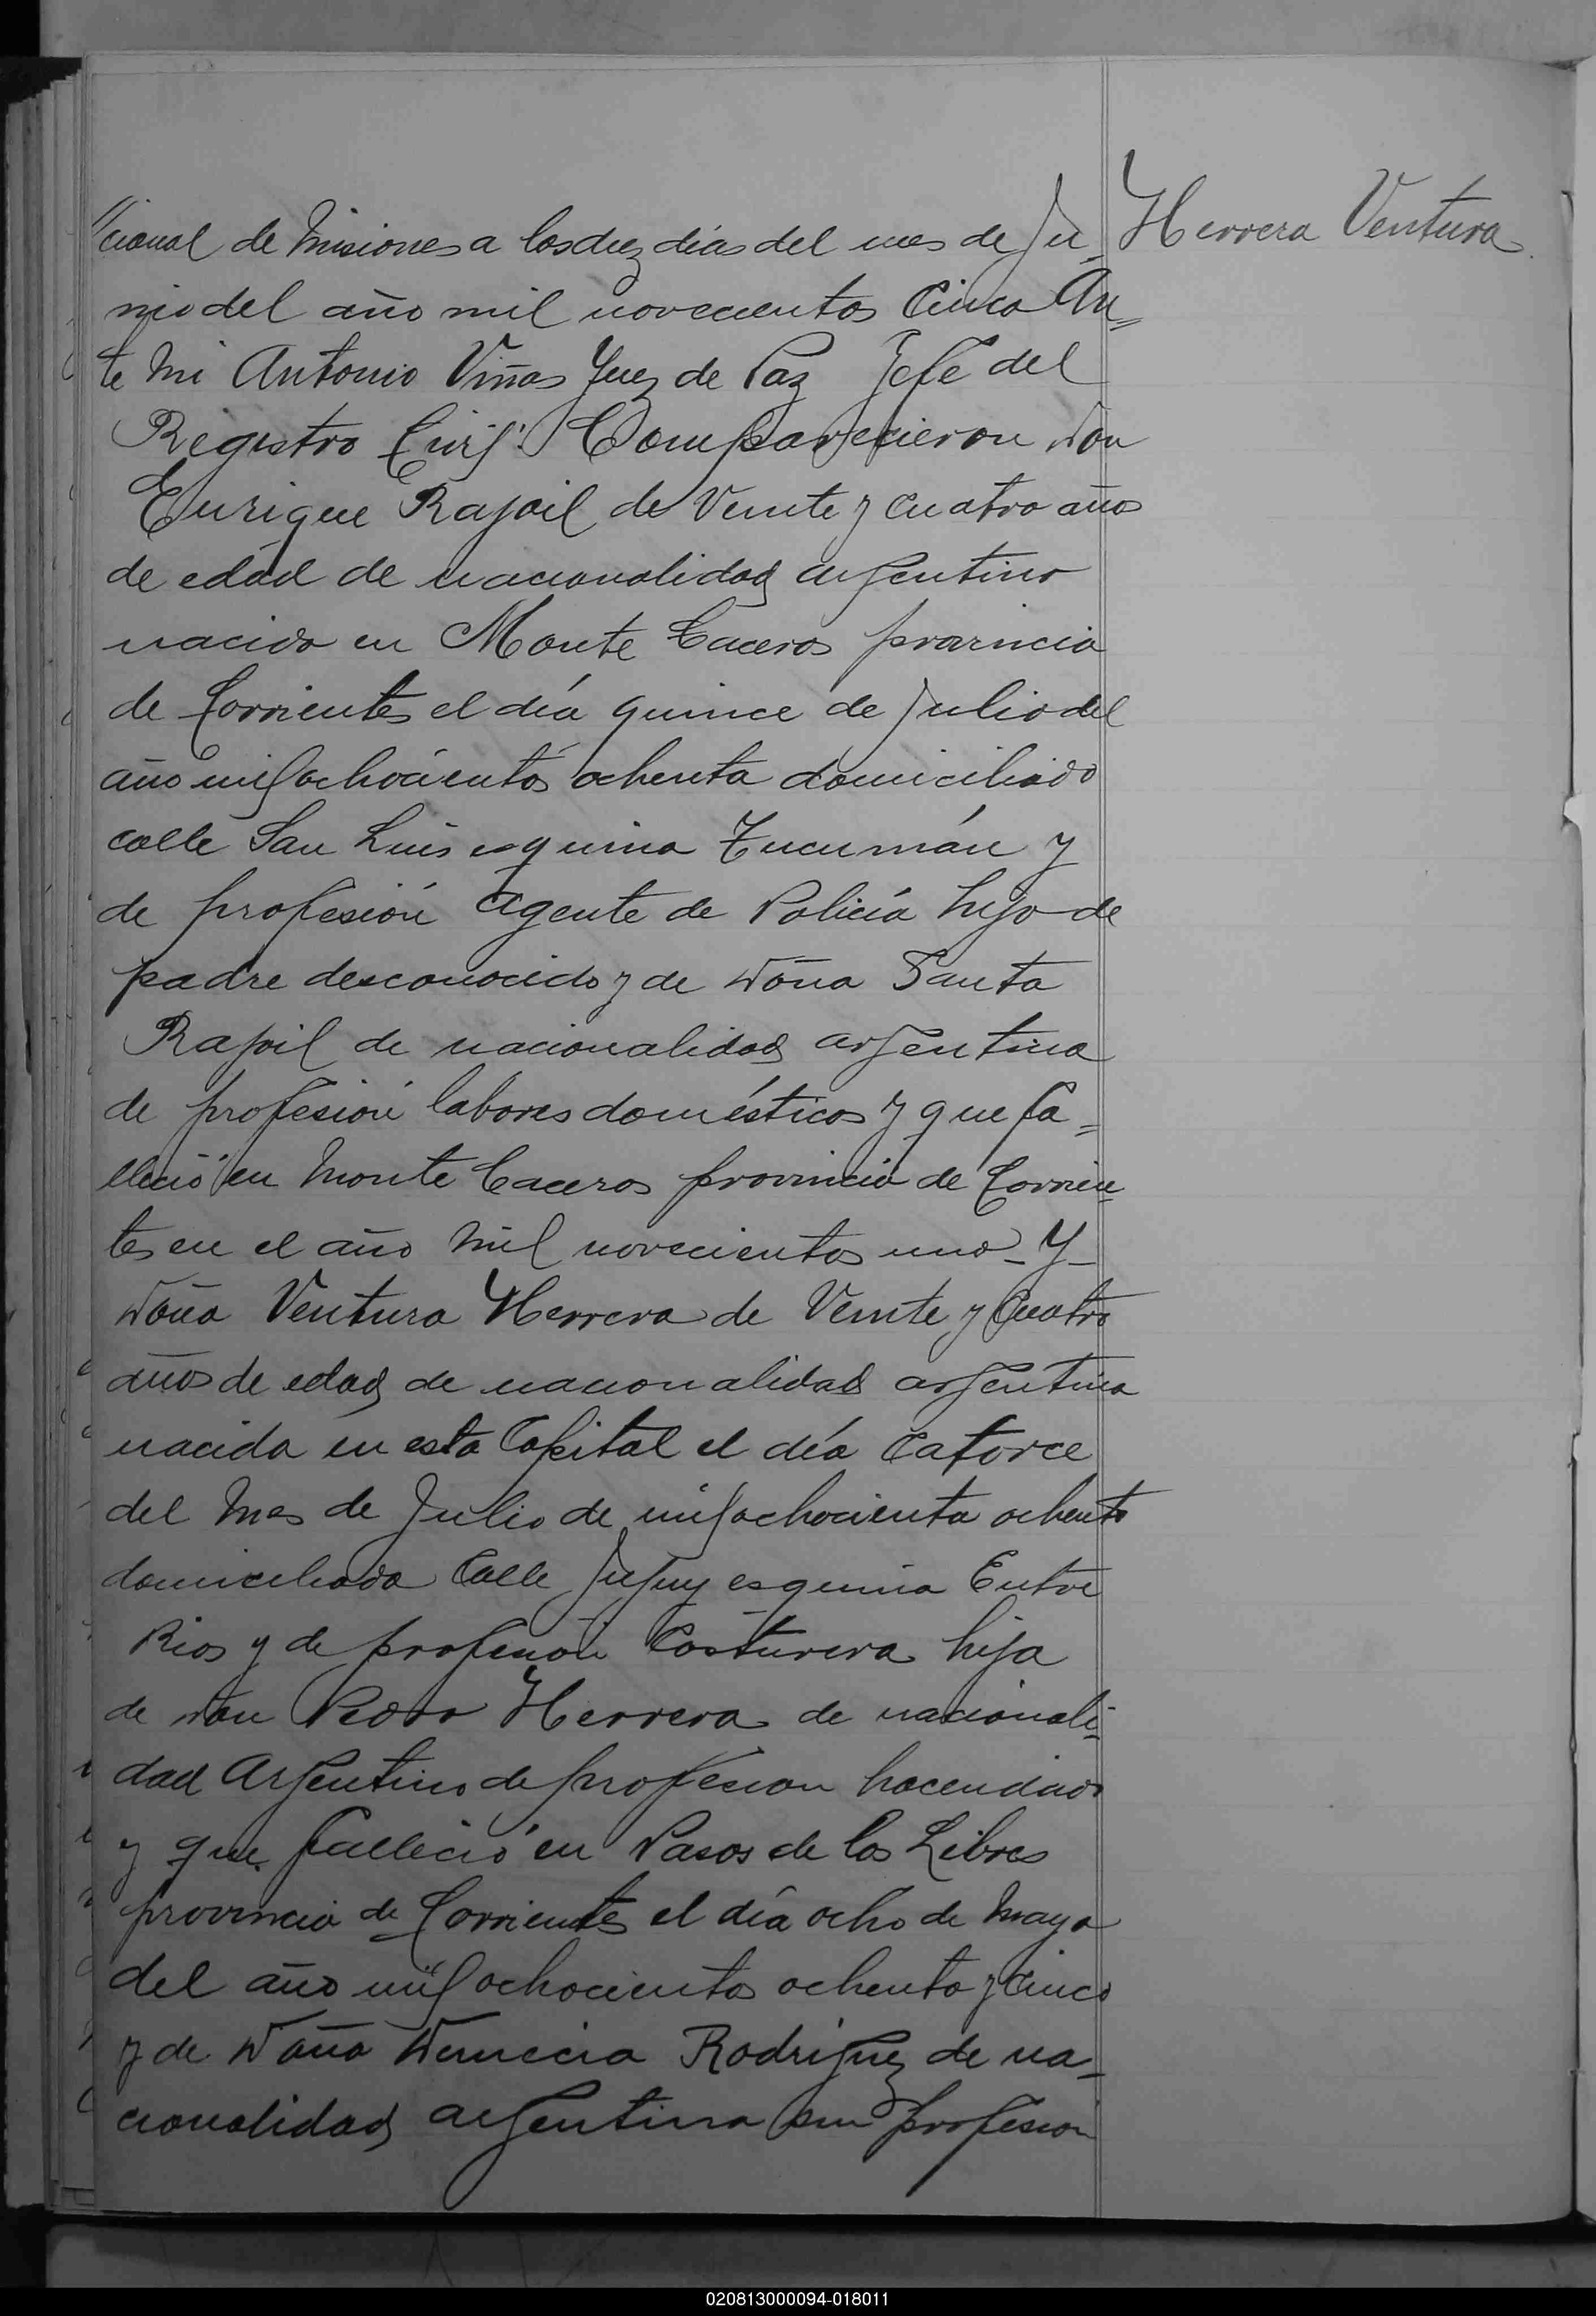 Herrera Ventura
//cional de Misiones a los diez días del mes de Ju-
nio del año mil novecientos Cinco An=
te Mi Antonio Viñas Juez de Paz Jefe del
Registro Civil Comparecieron Don
Enrique Rajoil de Veinte y cuatro años
de edad de nacionalidad argentino
nacido en Monte Caceros provincia
de Corrientes el día quince de Julio del
año mil ochocientos ochenta domiciliado
calle San Luis esquina Tucumán y
de profesión Agente de Policía hijo de
padre desconocido y de Doña Santa
Rajoil de nacionalidad argentina
de profesión labores domésticos y que fa=
lleció en Monte Caceros provincia de Corrien=
tes en el año Mil novecientos uno - Y -
Doña Ventura Herrera de Veinte y Cuatro
años de edad de nacionalidad argentina
nacida en esta Capital el día catorce
del Mes de Julio de mil ochocienta ochenta
domiciliada Calle Jujuy esquina Entre
Rios y de profesión Costurera hija
de Don Pedro Herrera de nacionali-
dad Argentino de profesion hacendado
y que falleció en Pasos de los Libres
provincia de Corrientes el día ocho de Mayo
del año mil ochocientos ochenta y cinco
y de Doña Rodriguez de na-
cionalidad argentina sin profesion
020813000094-018011